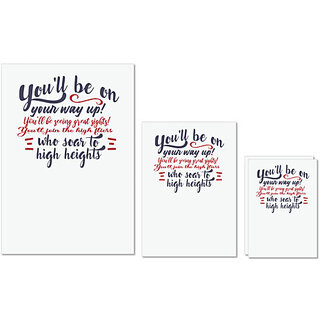 You'll be on
your way up!
You'll be seeing great sights!
You'll join the high fliers
who soar to
high heights
You'll be on
your way up!
You'll be seeing great sights!
You'll join the high fliers
who soar to
high heights
You'll be on
your way up!
You'll be seeing great sights!
You'll join the high fliers
who soar to
high heights